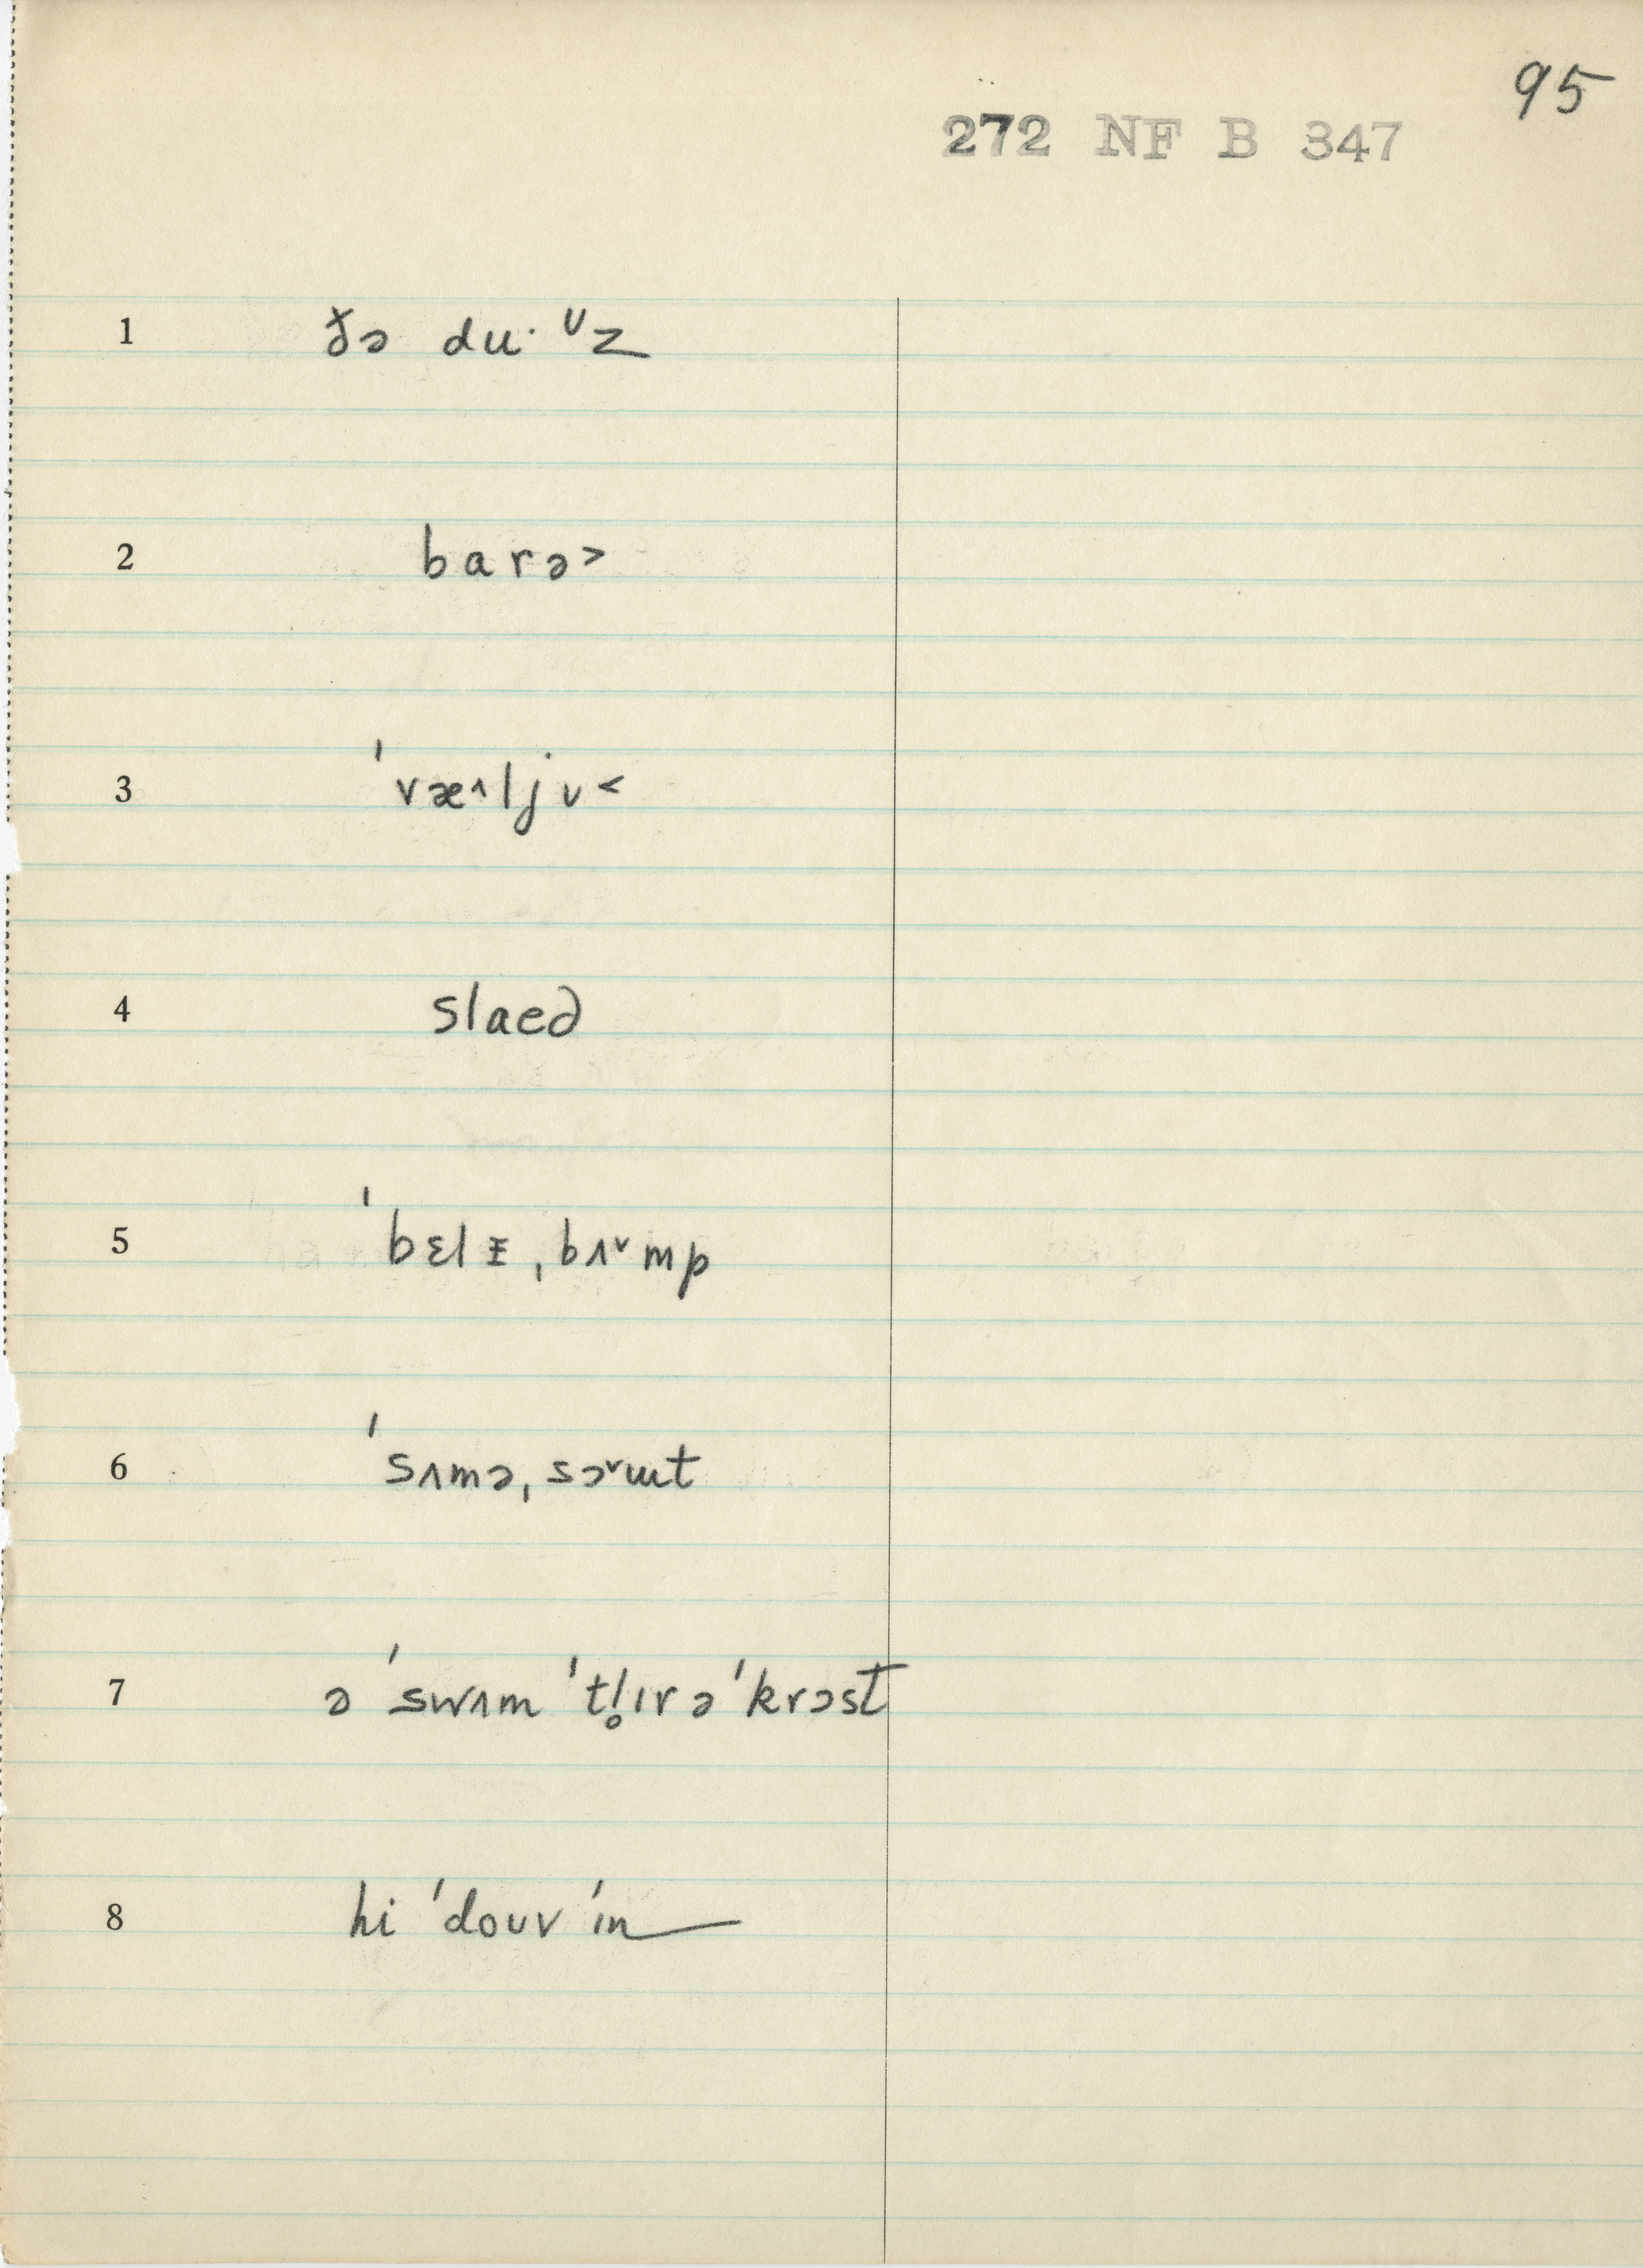 95
272 NF B 347
1 ðə duˑᶷz
2 barə˃
3 ˈvæ˄ljʊ˂
4 slaed
5 ˈbɛlɪ̵ˌbʌ˅mp
6 ˈsʌməˌsə˅ɯt
7 ə ˈswɪm ˈtl̥ɪrə ˈkrɔst
8 hi ˈdoʊv ˈɪn